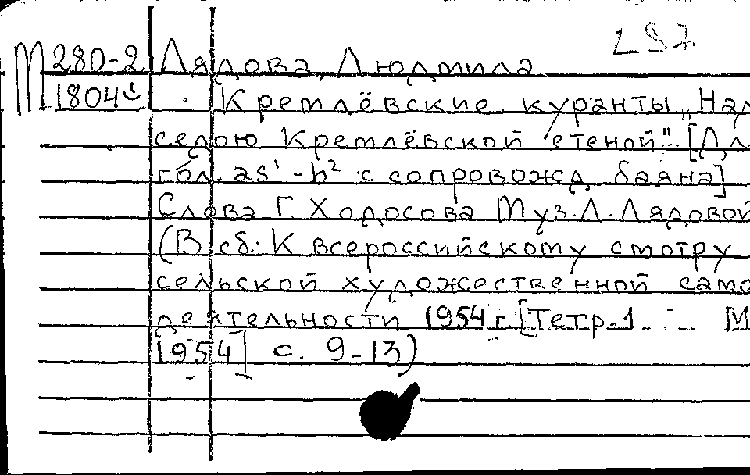 237
М 280-2 Лядова, Людмила
1804 Кремлёвские куранты „Над
седою Кремлёвской стеной" [Дл
гол. as¹-b² с сопровожд. баяна]
Слова Г. Ходосова Муз. Л. Лядовой
(В сб: К всероссийскому смотру
сельской художественной само
деятельности 1954 г. [Тетр. 1 М
1954] с. 9-13)